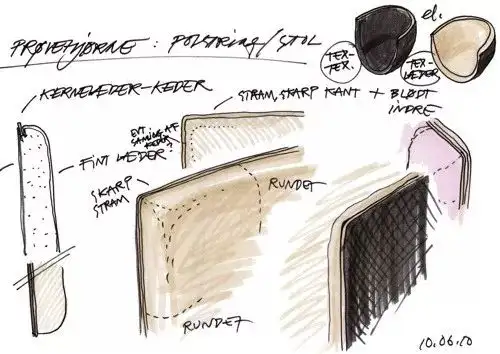 PRØVEHJØRNE : POLSTRING/STOL
el.
TEX-
TEX.
TEX-
LÆDER
KERNELÆDER-KEDER
STRAM, SKARP KANT + BLØDT
INDRE
EVT.
SAMLING AF
KEDER
FINT LÆDER?
SKARP
STRAM
RUNDET
RUNDET
10.06.10